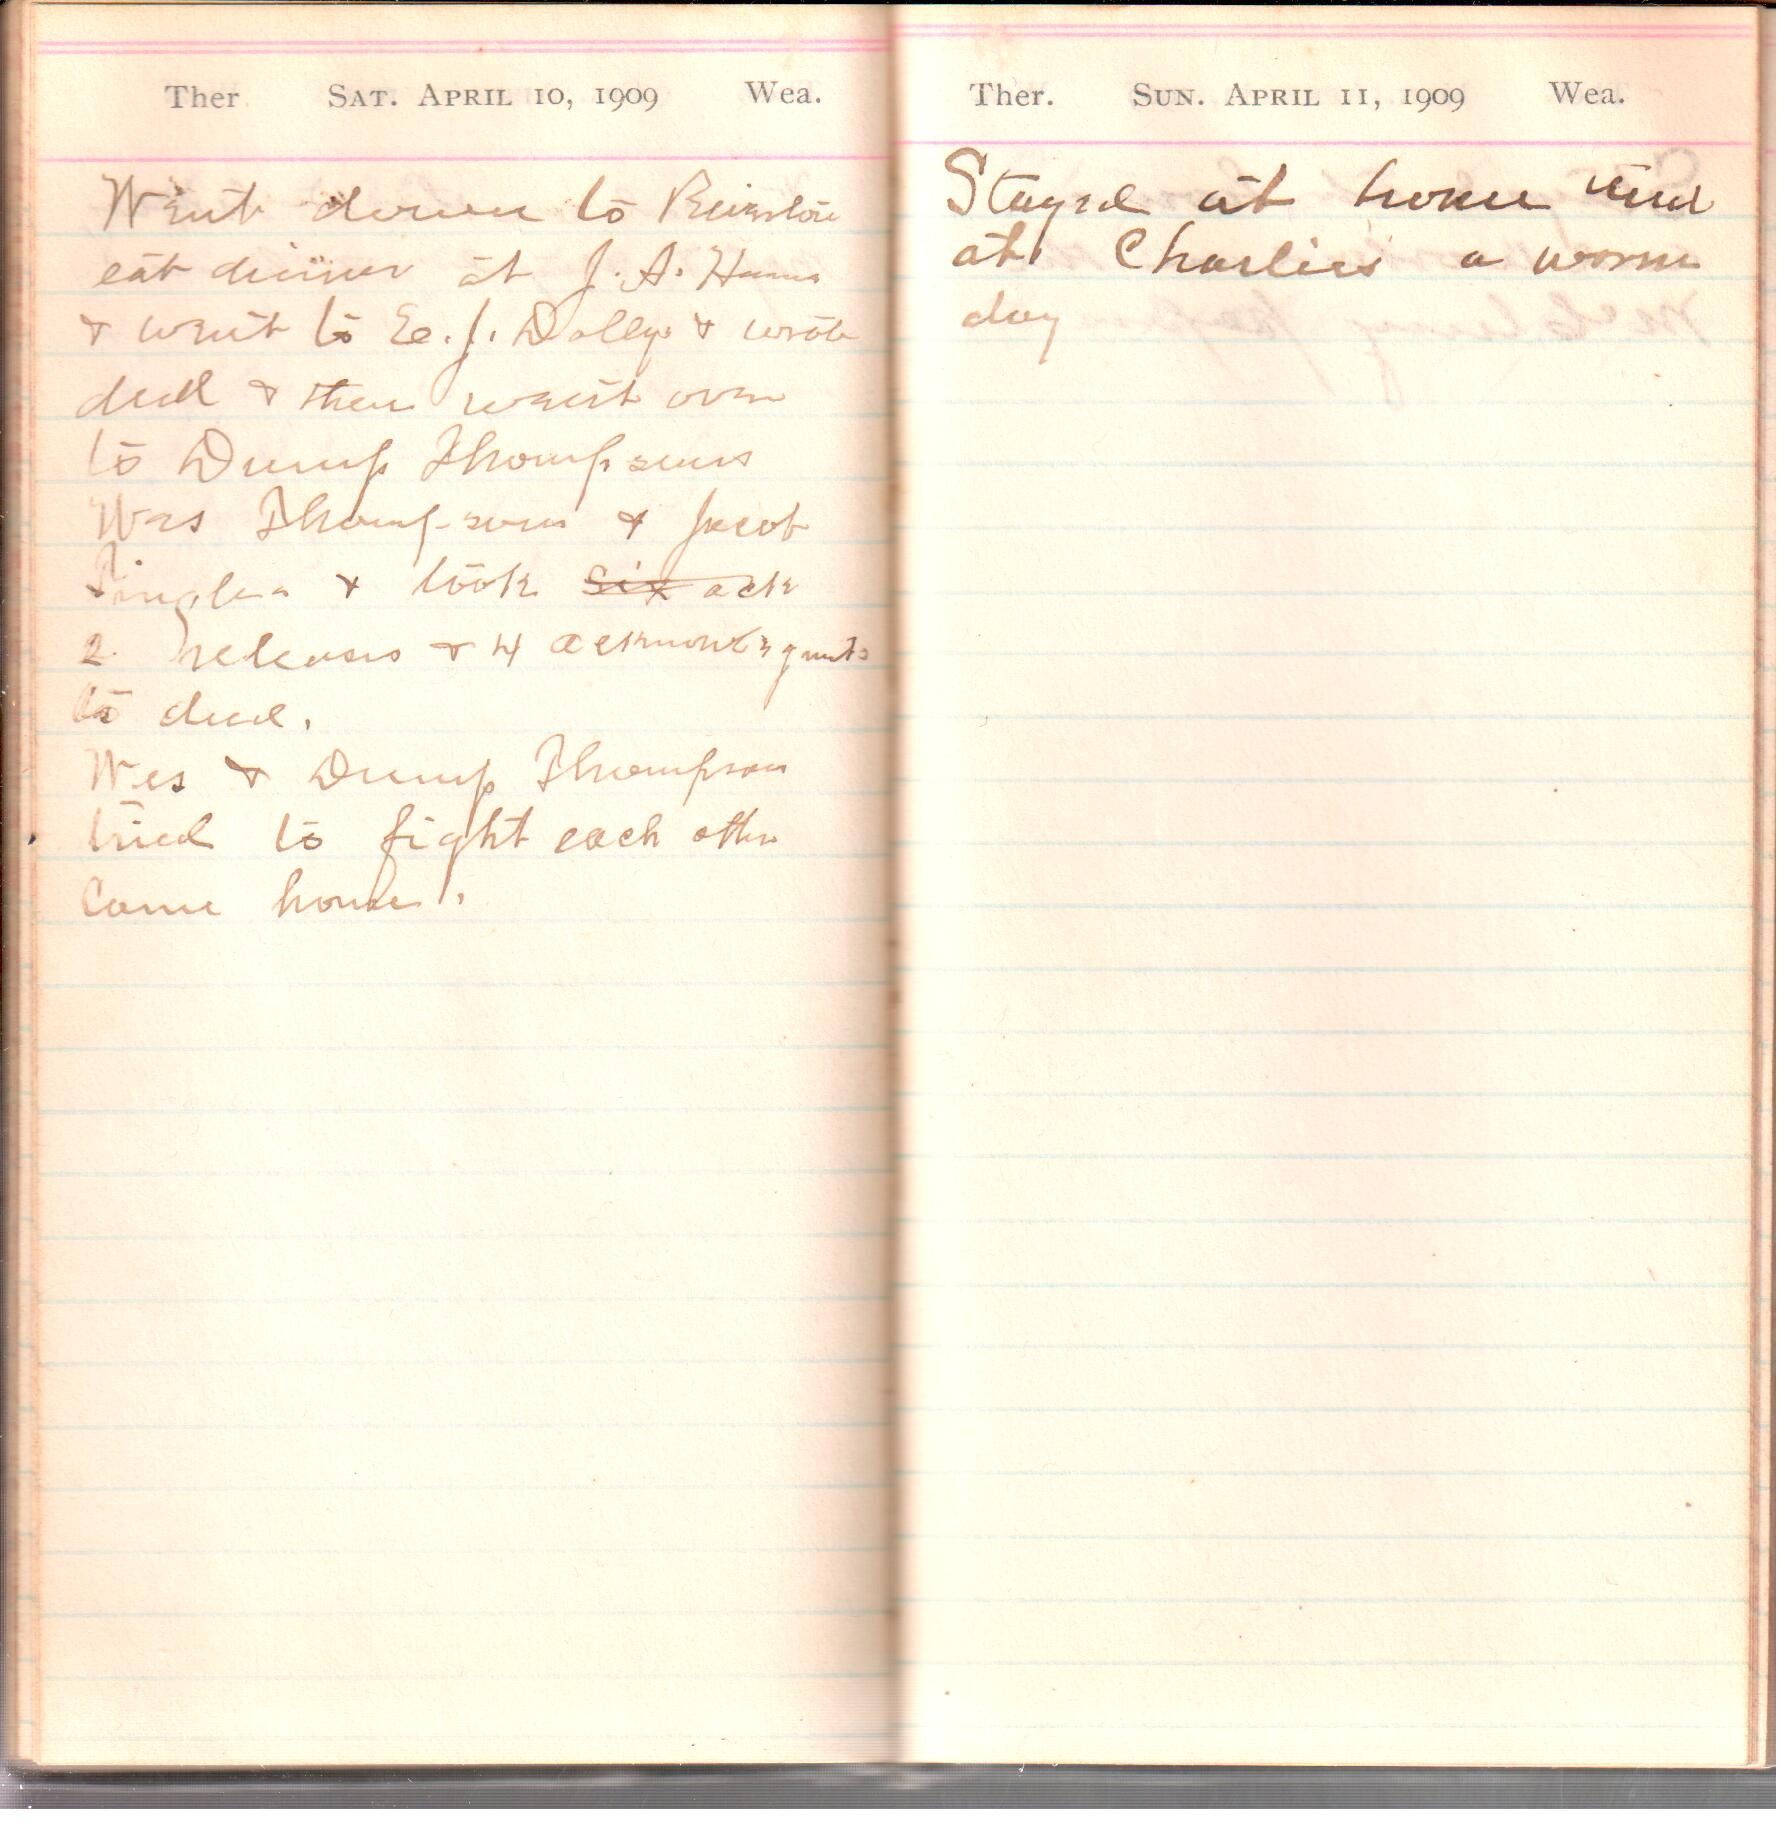 Ther Sat. April 10, 1909 Wea.
Went down to
eat dinner at J. A.
& went to E. J. Dolly & wrote
deed & then went over
to Dump Thompsons
Wes Thompsons & Jacob
& took ~~six~~ ack
2 releases & 4
to deed.
Wes & Dump Thompson
tried to fight each other
Came home.
Ther. Sun. April 11, 1909 Wea.
Stayed at home and
at Charlies a worm
day